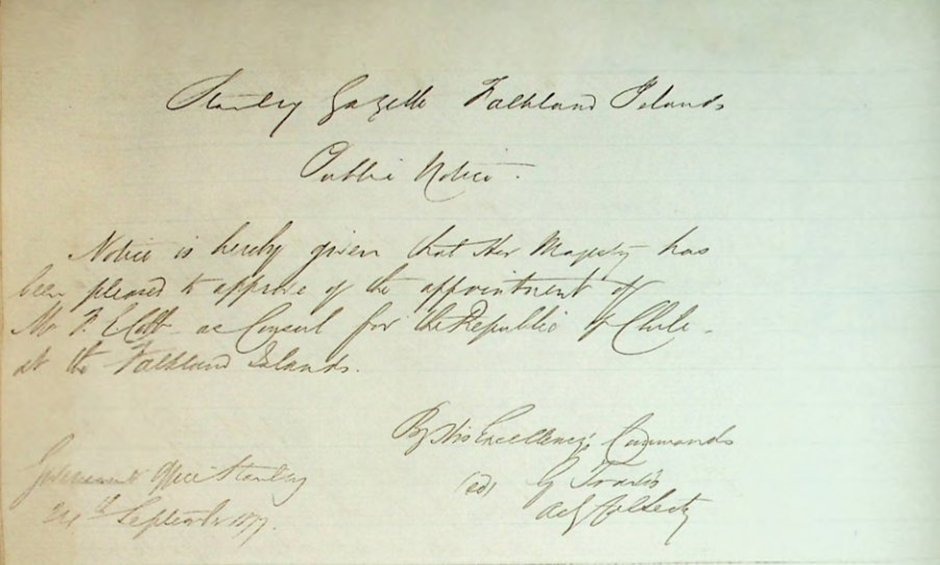 Stanley Gazette Falkland Islands
Public Notice.
Notice is hereby given that Her Majesty has
been pleased to approve of the appointment of
Mr F. E. Cobb as Consul for the Republic of Chile
at the Falkland Islands.
By His Excellency's Commands
(sd) G Travis
Actg Col Secty
Government Office Stanley
24th September 1877.